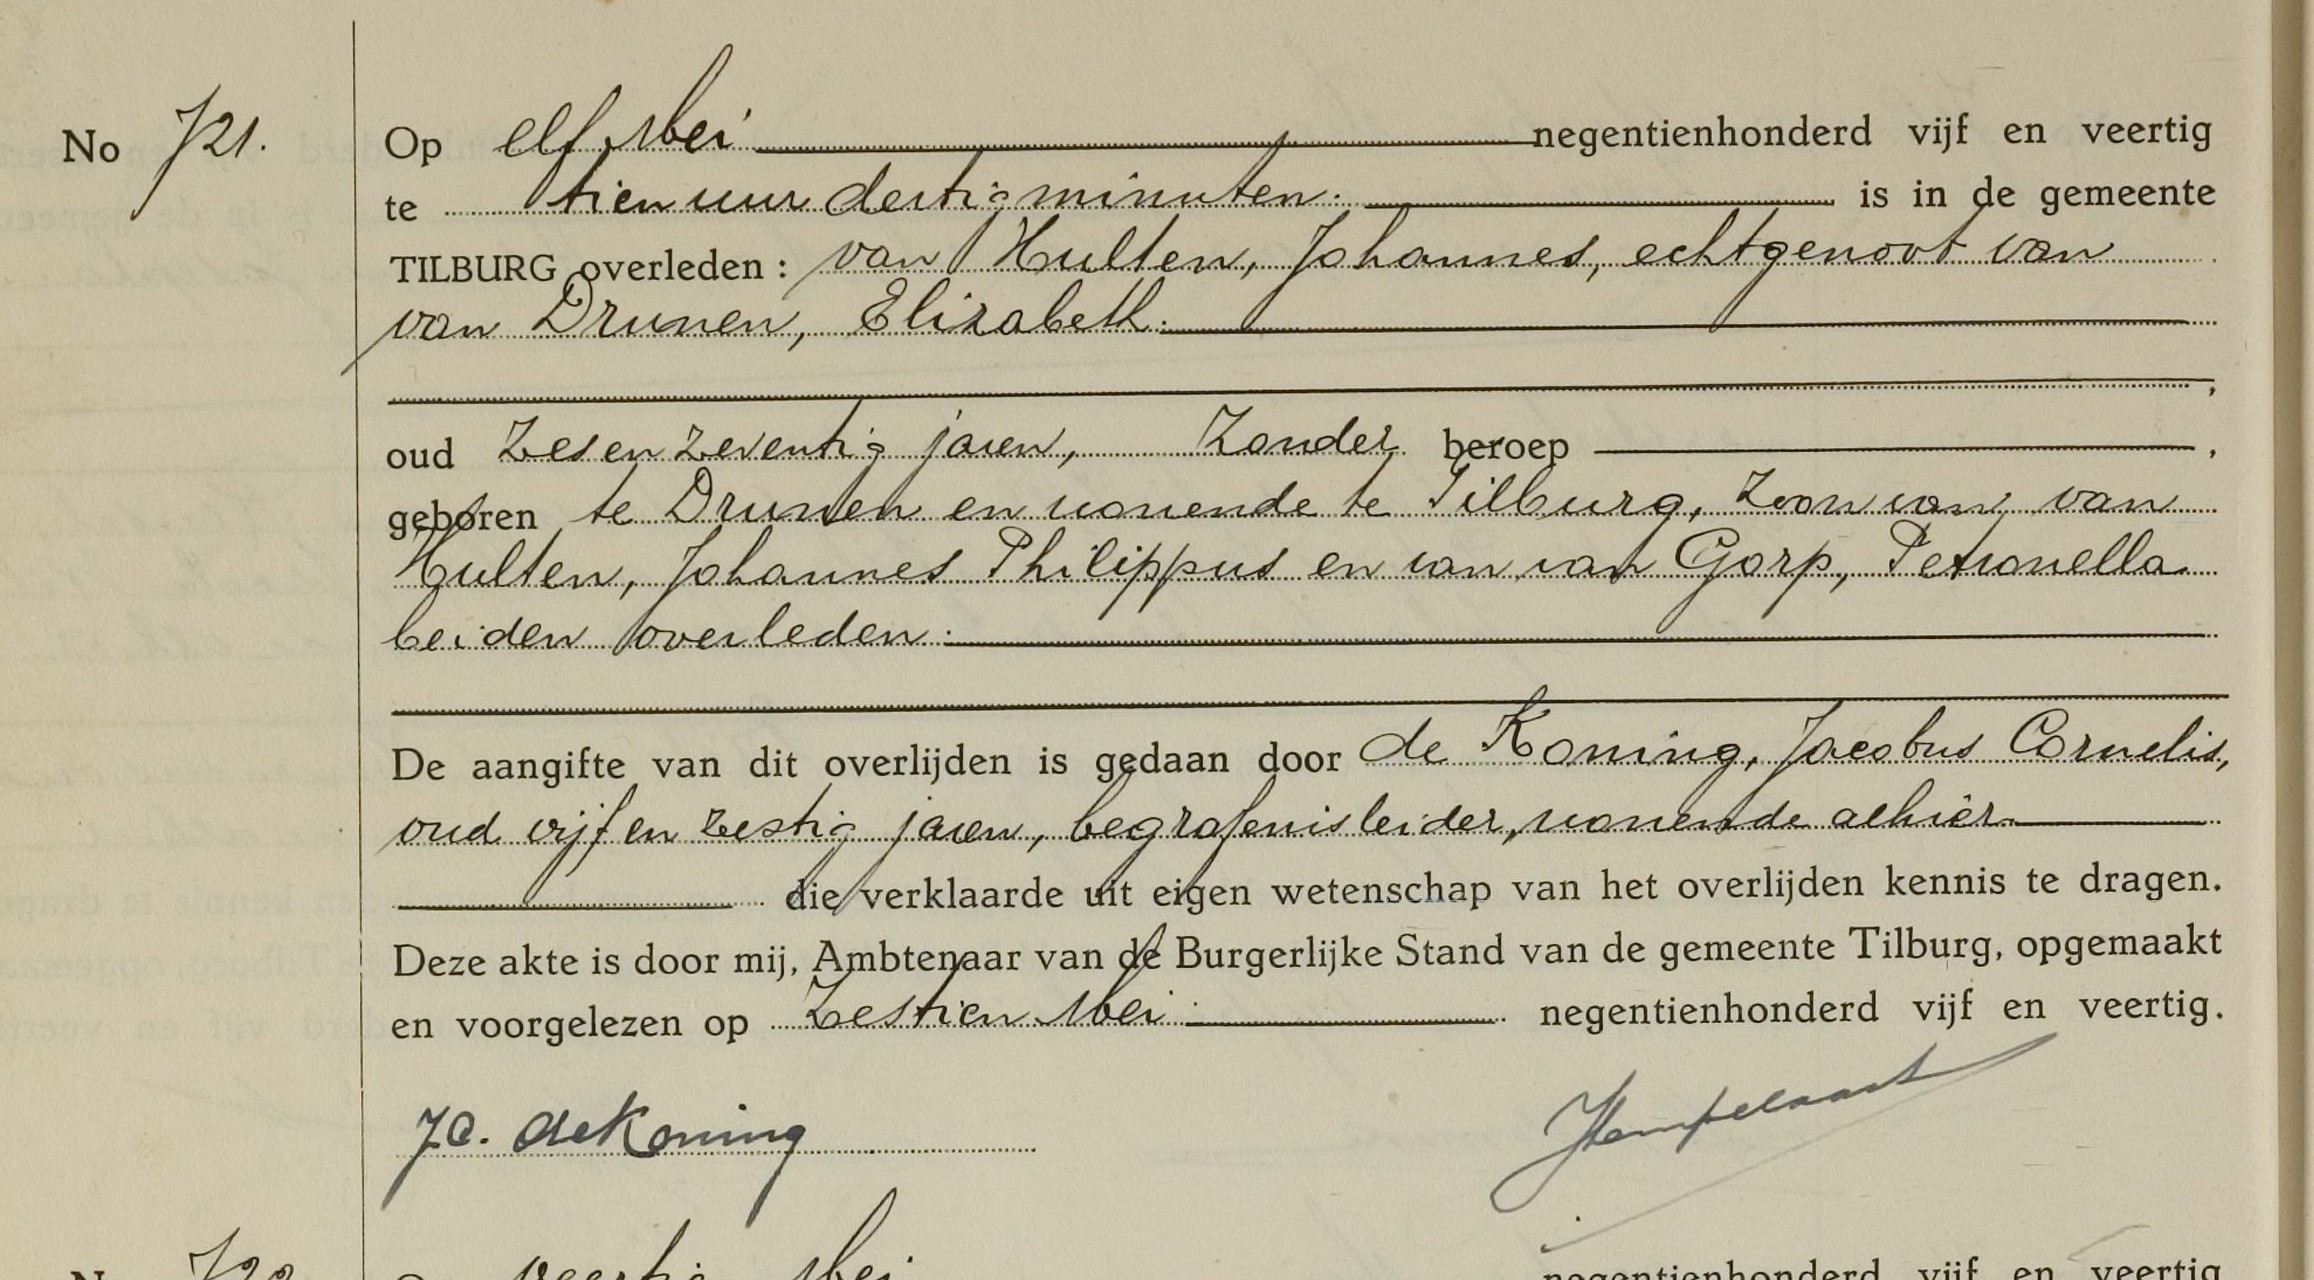 No 721.
Op elf Mei negentienhonderd vijf en veertig
te tien uur dertig minuten. is in de gemeente
TILBURG overleden : van Hulten, Johannes, echtgenoot van
van Drunen, Elizabeth.
oud zes en zeventig jaren, zonder beroep ,
geboren te Drunen en wonende te Tilburg, zoon van van
Hulten, Johannes Philippus en van van Gorp, Petronella
beiden overleden.
De aangifte van dit overlijden is gedaan door de Koning, Jacobus Cornelis,
oud vijf en zestig jaren, begrafenisleider, wonende alhier
die verklaarde uit eigen wetenschap van het overlijden kennis te dragen.
Deze akte is door mij, Ambtenaar van de Burgerlijke Stand van de gemeente Tilburg, opgemaakt
en voorgelezen op zestien Mei negentienhonderd vijf en veertig.
J.C. de Koning
No 722
Mei negentienhonderd vijf en veertig